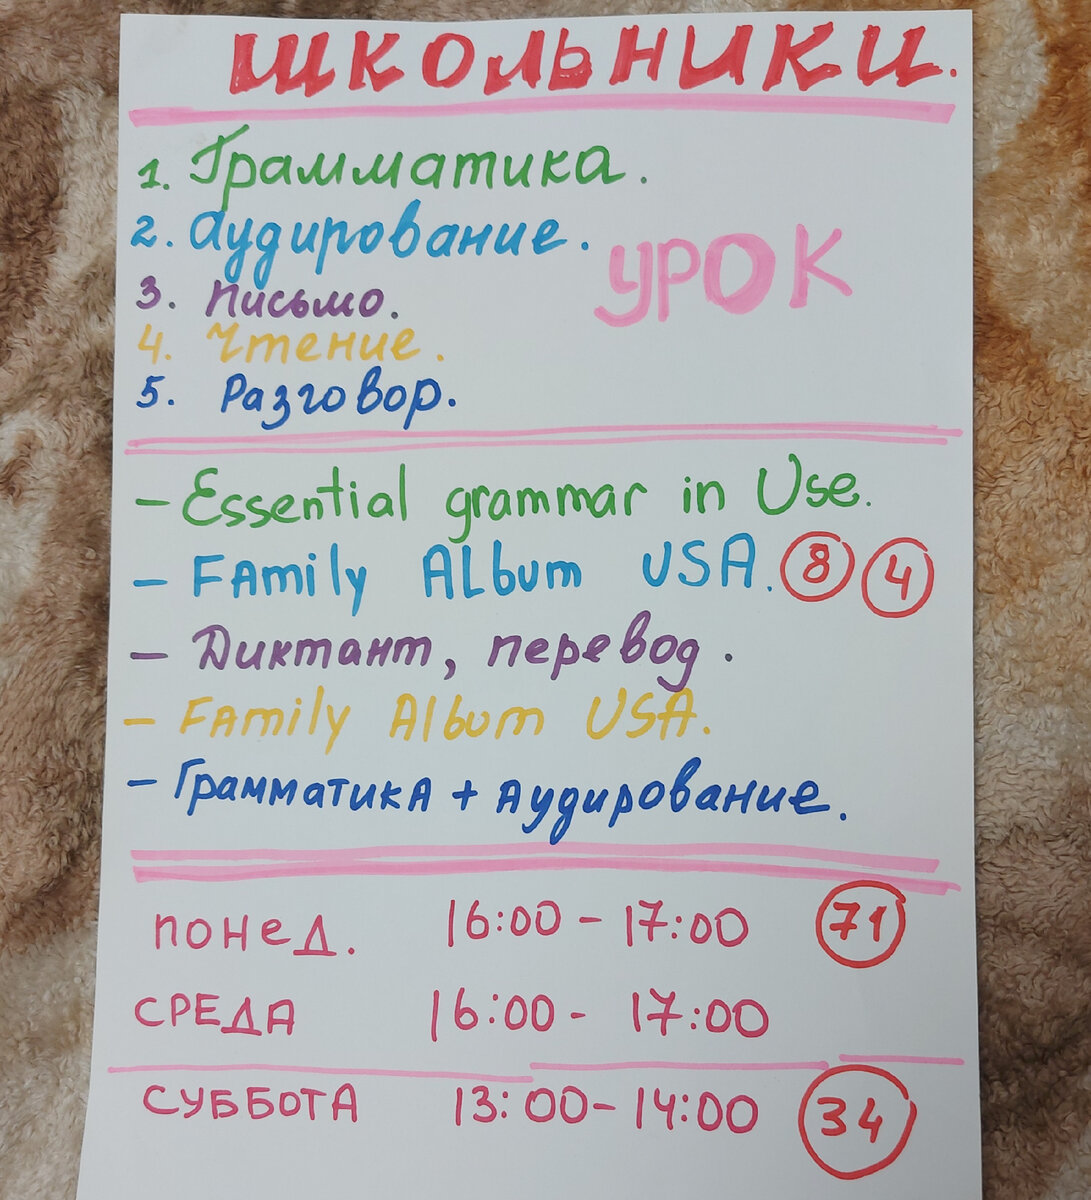 ШКОЛЬНИКИ.
1. Грамматика.
2. Аудирование.
УРОК
3. Письмо.
4. Чтение.
5. Разговор.
- Essential grammar in Use.
- FAmily ALbum USA. 8 4
- Диктант, перевод.
- FAmily Album USA.
- Грамматика + Аудирование.
понед. 16:00 - 17:00 71
СРЕДА 16:00 - 17:00
СУББОТА 13:00 - 14:00 34